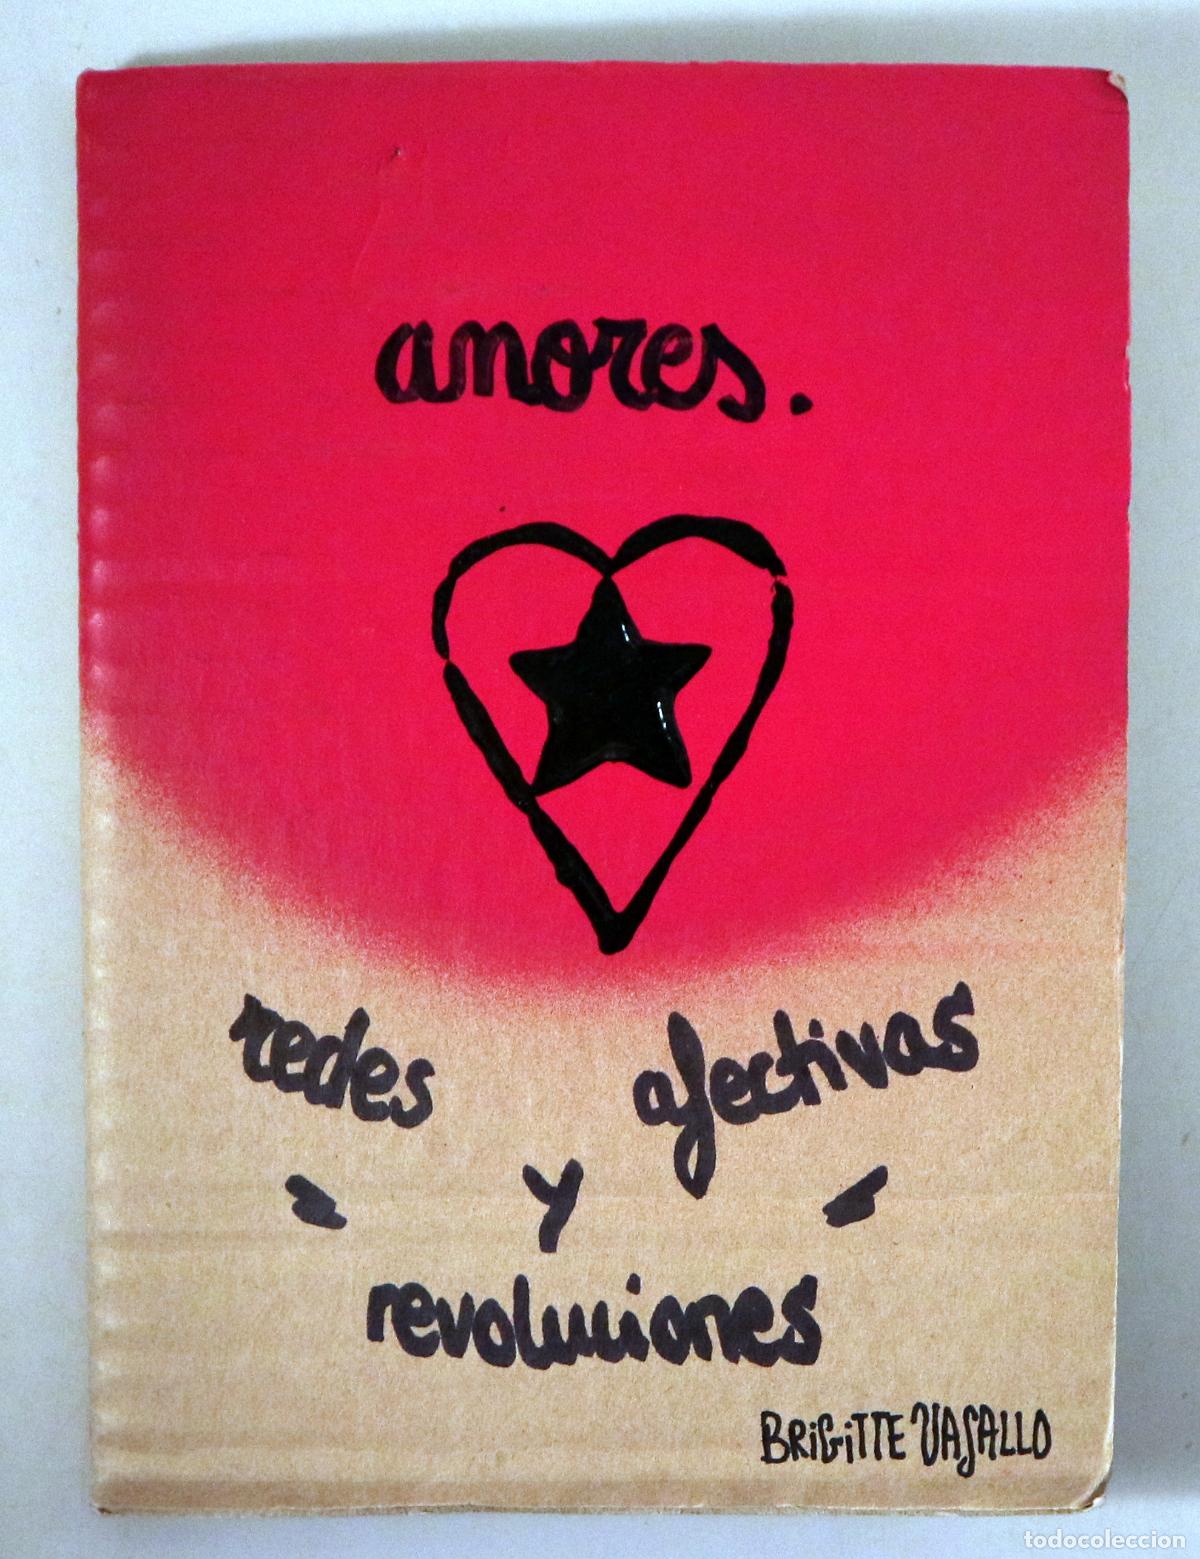 amores.
redes afectivas
- y -
revoluciones
BRIGITTE VASALLO
todocoleccion